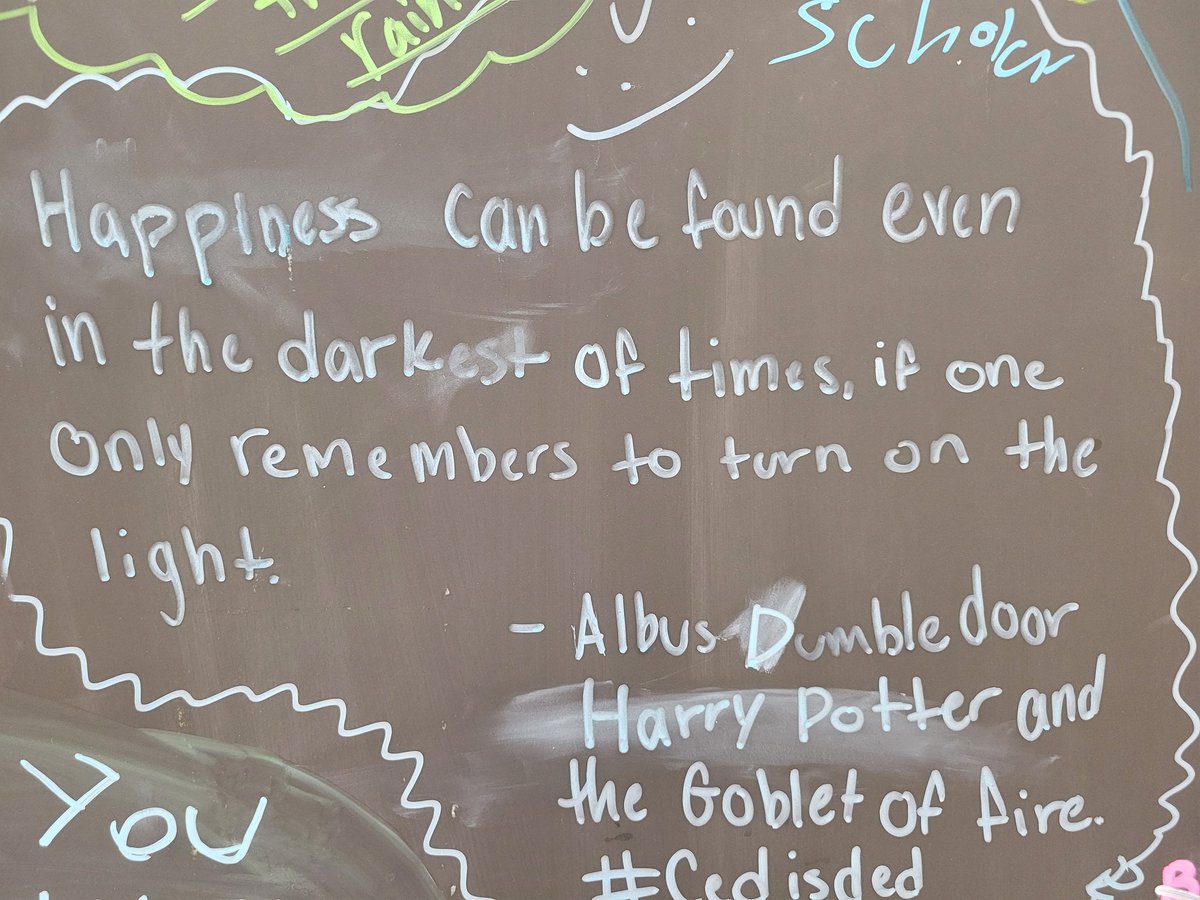 rain
Scholar
Happiness can be found even
in the darkest of times, if one
only remembers to turn on the
light.
- Albus Dumbledoor
Harry Potter and
the Goblet of fire.
#Cedisded
You
B